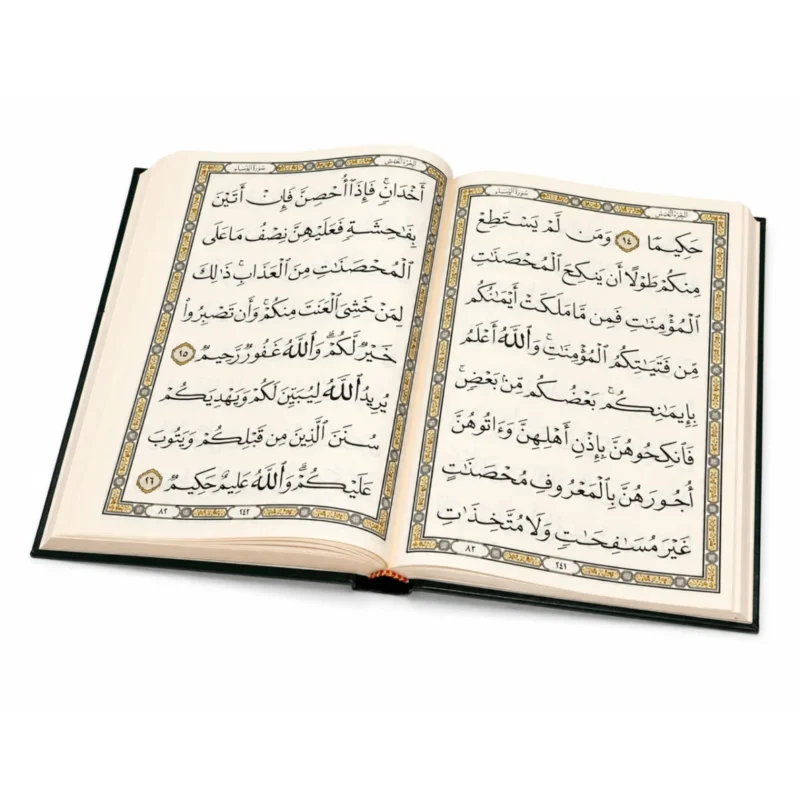 سورة النساء
حَكِيمًا ١٤ وَمَن لَّمْ يَسْتَطِعْ
مِنكُمْ طَوْلًا أَن يَنكِحَ الْمُحْصَنَاتِ
الْمُؤْمِنَاتِ فَمِن مَّا مَلَكَتْ أَيْمَانُكُم
مِّن فَتَيَاتِكُمُ الْمُؤْمِنَاتِ ۚ وَاللَّهُ أَعْلَمُ
بِإِيمَانِكُم ۚ بَعْضُكُم مِّن بَعْضٍ ۚ
فَانكِحُوهُنَّ بِإِذْنِ أَهْلِهِنَّ وَءَاتُوهُنَّ
أُجُورَهُنَّ بِالْمَعْرُوفِ مُحْصَنَاتٍ
غَيْرَ مُسَافِحَاتٍ وَلَا مُتَّخِذَاتِ
٨٢ ٢٤١
سورة النساء
أَخْدَانٍ ۚ فَإِذَا أُحْصِنَّ فَإِنْ أَتَيْنَ
بِفَاحِشَةٍ فَعَلَيْهِنَّ نِصْفُ مَا عَلَى
الْمُحْصَنَاتِ مِنَ الْعَذَابِ ۚ ذَٰلِكَ
لِمَنْ خَشِيَ الْعَنَتَ مِنكُمْ ۚ وَأَن تَصْبِرُوا
خَيْرٌ لَّكُمْ ۗ وَاللَّهُ غَفُورٌ رَّحِيمٌ ١٥
يُرِيدُ اللَّهُ لِيُبَيِّنَ لَكُمْ وَيَهْدِيَكُمْ
سُنَنَ الَّذِينَ مِن قَبْلِكُمْ وَيَتُوبَ
عَلَيْكُمْ ۗ وَاللَّهُ عَلِيمٌ حَكِيمٌ ٢٦
٢٤٢ ٨٢